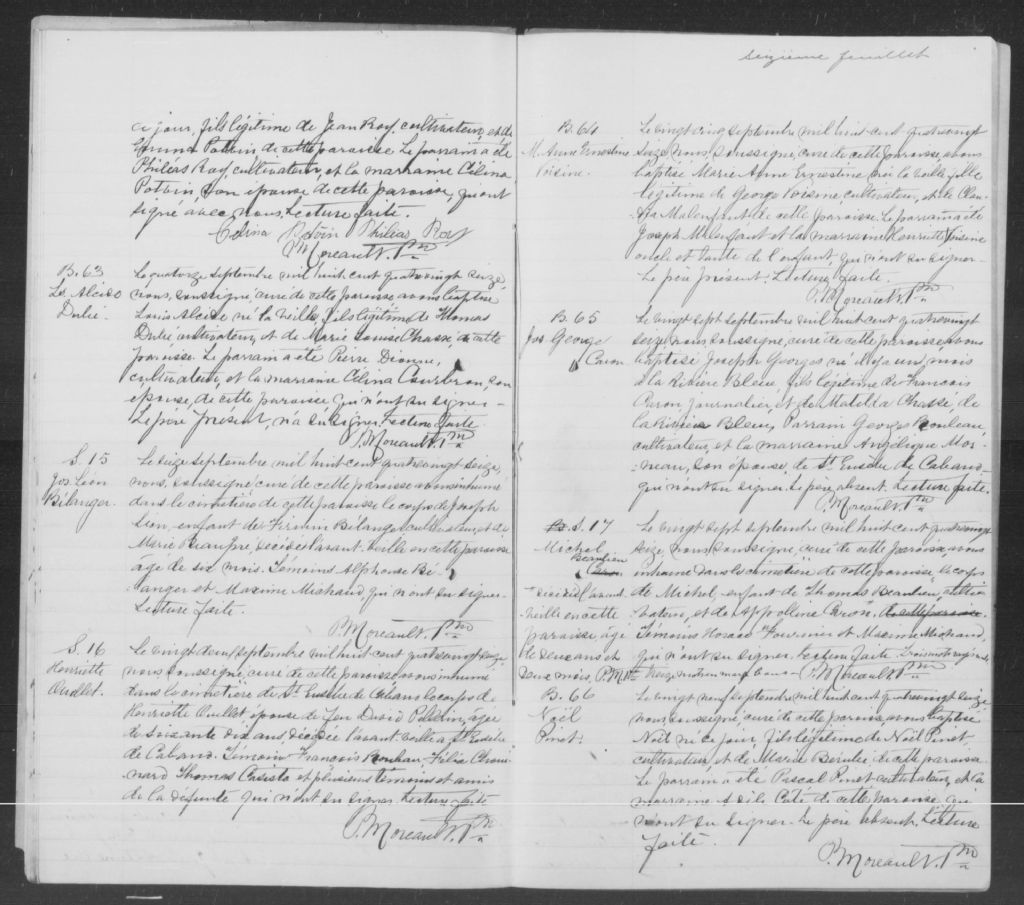 ce jour, fils légitime de Jean Roy, cultivateur, et de
Emma Potvin de cette paroisse. Le parrain a été
Philéas Roy, cultivateur, et la marraine Célina
Potvin, son épouse de cette paroisse, qui ont
signé avec nous. Lecture faite.
Célina Potvin Philias Roy
P. Moreault. Ptre
B. 63
Ls Alcide
Dubé.
Le quatorze septembre mil huit cent quatrevingt seize,
nous, soussigné, curé de cette paroisse avons baptisé
Louis Alcide né la veille, fils légitime de Thomas
Dubé cultivateur, et de Marie Louise Chassé de cette
paroisse. Le parrain a été Pierre Dionne,
cultivateur, et la marraine Célina Courbron, son
épouse, de cette paroisse qui n'ont su signer.
Le père présent, n'a su signer. Lecture faite.
P. Moreault. Ptre
S. 15
Jos. Léon
Bélanger.
Le seize septembre mil huit cent quatrevingt seize,
nous, soussigné curé de cette paroisse avons inhumé
dans le cimetière de cette paroisse le corps de Joseph
Léon, enfant de Firmin Bélanger cultivateur, et de
Marie Beaupré, décédé l'avant-veille en cette paroisse
age de six mois. Témoins Alphonse Bé-
langer et Maxime Michaud, qui n'ont su signer.
Lecture faite.
P. Moreault. Ptre
S. 16
Henriette
Ouellet.
Le vingt deux septembre mil huit cent quatrevingt seize
nous soussigné, curé de cette paroisse avons inhumé
dans le cimetière de St Eusèbe de Cabano le corps de
Henriette Ouellet épouse de feu David Pelletier, agée
de soixante dix ans décédée l'avant-veille à St Eusèbe
de Cabano. Témoins François Rouleau, Félix Choui-
nard Thomas et plusieurs témoins et amis
de la défunte qui n'ont su signer. Lecture faite
P. Moreault. Ptre
Seizième feuillet
B. 64
M. Anne Ernestine
Voisine.
Le vingt cinq septembre mil huit cent quatrevingt
seize, nous, soussigné, curé de cette paroisse, avons
baptisé Marie Anne Ernestine née la veille, fille
légitime de George Voisine cultivateur, et de
Malenfant de cette paroisse. Le parrain a été
Joseph Malenfant et la marraine Henriette Voisine
oncle et tante de l'enfant, qui n'ont su signer.
Le père présent. Lecture faite.
P. Moreault. Ptre
B. 65
Jos. George
Caron
Le vingt sept septembre mil huit cent quatrevingt
seize, nous, soussigné, curé de cette paroisse, avons
baptisé Joseph Georges né il y a un mois
à la Rivière Bleue, fils légitime de François
Caron, journalier, et de Matilda Chassé, de
la Rivière Bleue, Parrain George Rouleau,
cultivateur, et la marraine Angélique Mor-
neau, son épouse, de St Eusèbe de Cabano
qui n'ont su signer. Le père absent. Lecture faite.
P. Moreault. Ptre
S. 17
Michel
Beaulieu
Caron
Le vingt sept septembre mil huit cent quatrevingt
seize, nous, soussigné, curé de cette paroisse, avons
inhumé dans le cimetière de cette paroisse, le corps
de Michel, enfant de Thomas Beaulieu, culti-
vateur, et de Appolline Caron. de cette paroisse
Témoins Horace Fournier et Maxime Michaud,
qui n'ont su signer. Lecture faite.
décédé l'avant-
veille en cette
paroisse, agé
de deux ans et
deux mois. P. M. Ptre
P. Moreault. Ptre
B. 66
Noël
Pinet.
Le vingt neuf septembre mil huit cent quatrevingt seize
nous, soussigné, curé de cette paroisse, avons baptisé
Noël né ce jour, fils légitime de Noël Pinet,
cultivateur, et de Marie Bérubé de cette paroisse.
Le parrain a été Pascal Pinet cultivateur, et la
marraine Coté de cette paroisse, qui
n'ont su signer. Le père absent. Lecture
faite.
P. Moreault. Ptre